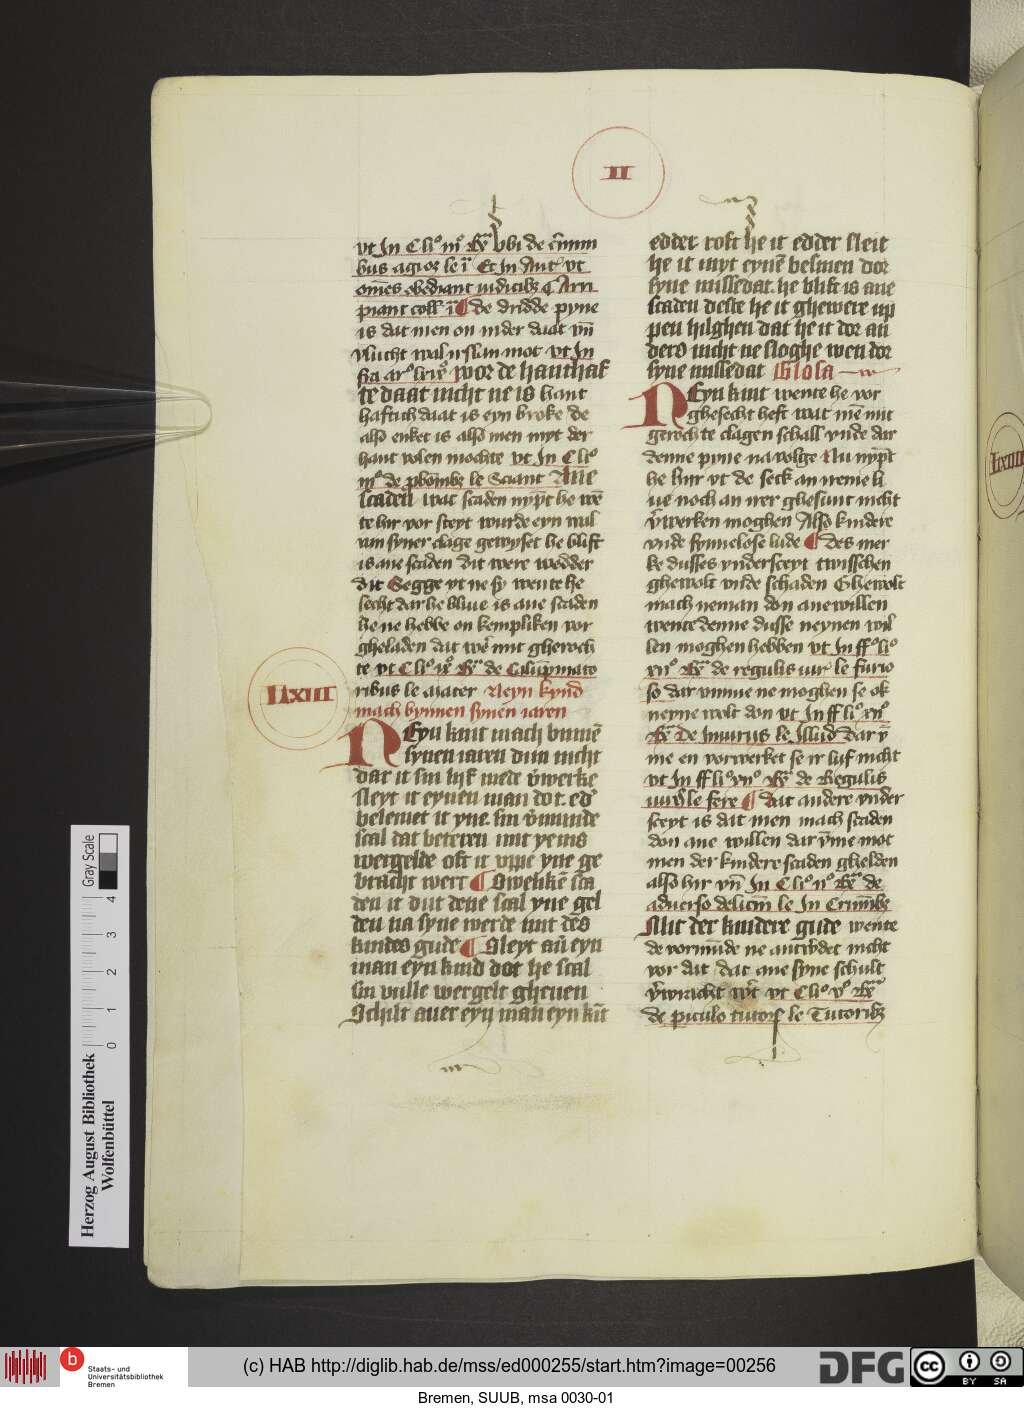 II
vt In Cli° iii° Rᵃ vbi de crimin
bus agi oꝫ le i Et In Aut vt
omēs obediant iudicibꝫ ¶ Arn
piant coll i ¶ de dridde pyne
is dat men on nider daat vn̄
vlucht wal
wor de hanthaf
te daat nicht ne is hant
haftich daat is eyn broke de
also enket is also men myt der
hant volen mochte vt In Cli°
iii° de le Sciant Ane
scaden wat scaden nympt he wē
te hir vor steyt wurde eyn vul
syner clage gewyset he blift
is ane scaden dit were wedder
dit Segge vt ne sy wente he
secht dar he bliue is ane scaden
he ne hebbe on kempliken vor
gheladen dat wē mit gheroch
te vt Cli° ix° Rᵃ de Calūpmato
ribus le mater Neyn kynd
mach bynnen synen iaren
LXIII
NEyn kint mach binnē
synen iaren dun nicht
dat it sin lyf mede v̄werke
sleyt it eynen man dot. ed°
belemet it yne. sin v̄munde
scal dat beteren mit yens
wergelde oft it vppe yne ge
bracht wert ¶ Swelkē sca
den it dut dene scal yne gel
den na syne werde mit des
kindes gude ¶ Sleyt au eyn
man eyn kind dot he scal
sin vulle wergelt gheuen
Schilt auer eyn man eyn kīt
edder roft he it edder sleit
he it myt eynē besmen dor
syne missedat. he blift is ane
scaden deste he it ghewere up
pen hilghen dat he it dor an
ders nicht ne sloghe wen dor
syne missedat Glosa
NEyn kint wente he vor
ghesecht heft wat mē mit
gerochte clagen schall vnde dar
denne pyne na volge Nu nypt
he hir vt de seck an irenie li
ue noch an irer ghesunt nicht
v̄werken moghen Also kindere
vnde synnelose lude ¶ des mer
ke dusses vndersceyt twisschen
ghewolt vnde schaden Ghewolt
mach neman don ane willen
wente denne dusse neynen wil
len moghen hebben vt In ff° li°
xii° Rᵃ de regulis iur le furio
so dar vmme ne moghen se ok
neyne wolt don vt In ff li° xii°
Rᵃ De Iniuriis le Illud dar v̄
me en vorwerket se ir luf nicht
vt In ff li° vii° Rᵃ de Regulis
iur le fere ¶ Dat andere vnder
sceyt is dat men mach scaden
don ane willen dar v̄me mot
men der kindere scaden ghelden
also hir vn̄ In Cli° ii° Rᵃ de
aduerso delictm le In Criminbꝫ
Mit der kindere gude wente
de vormūde ne antwrdet nicht
vor dat dat ane syne schult
v̄wracht wert vt Cli° v° Rᵃ
de piculo tutorꝫ le Tutoribꝫ
LXIIII
Gray Scale
0 1 2 3 4
Herzog August Bibliothek
Wolfenbüttel
b
Staats- und
Universitätsbibliothek
Bremen
(c) HAB http://diglib.hab.de/mss/ed000255/start.htm?image=00256
DFG
cc BY SA
Bremen, SUUB, msa 0030-01